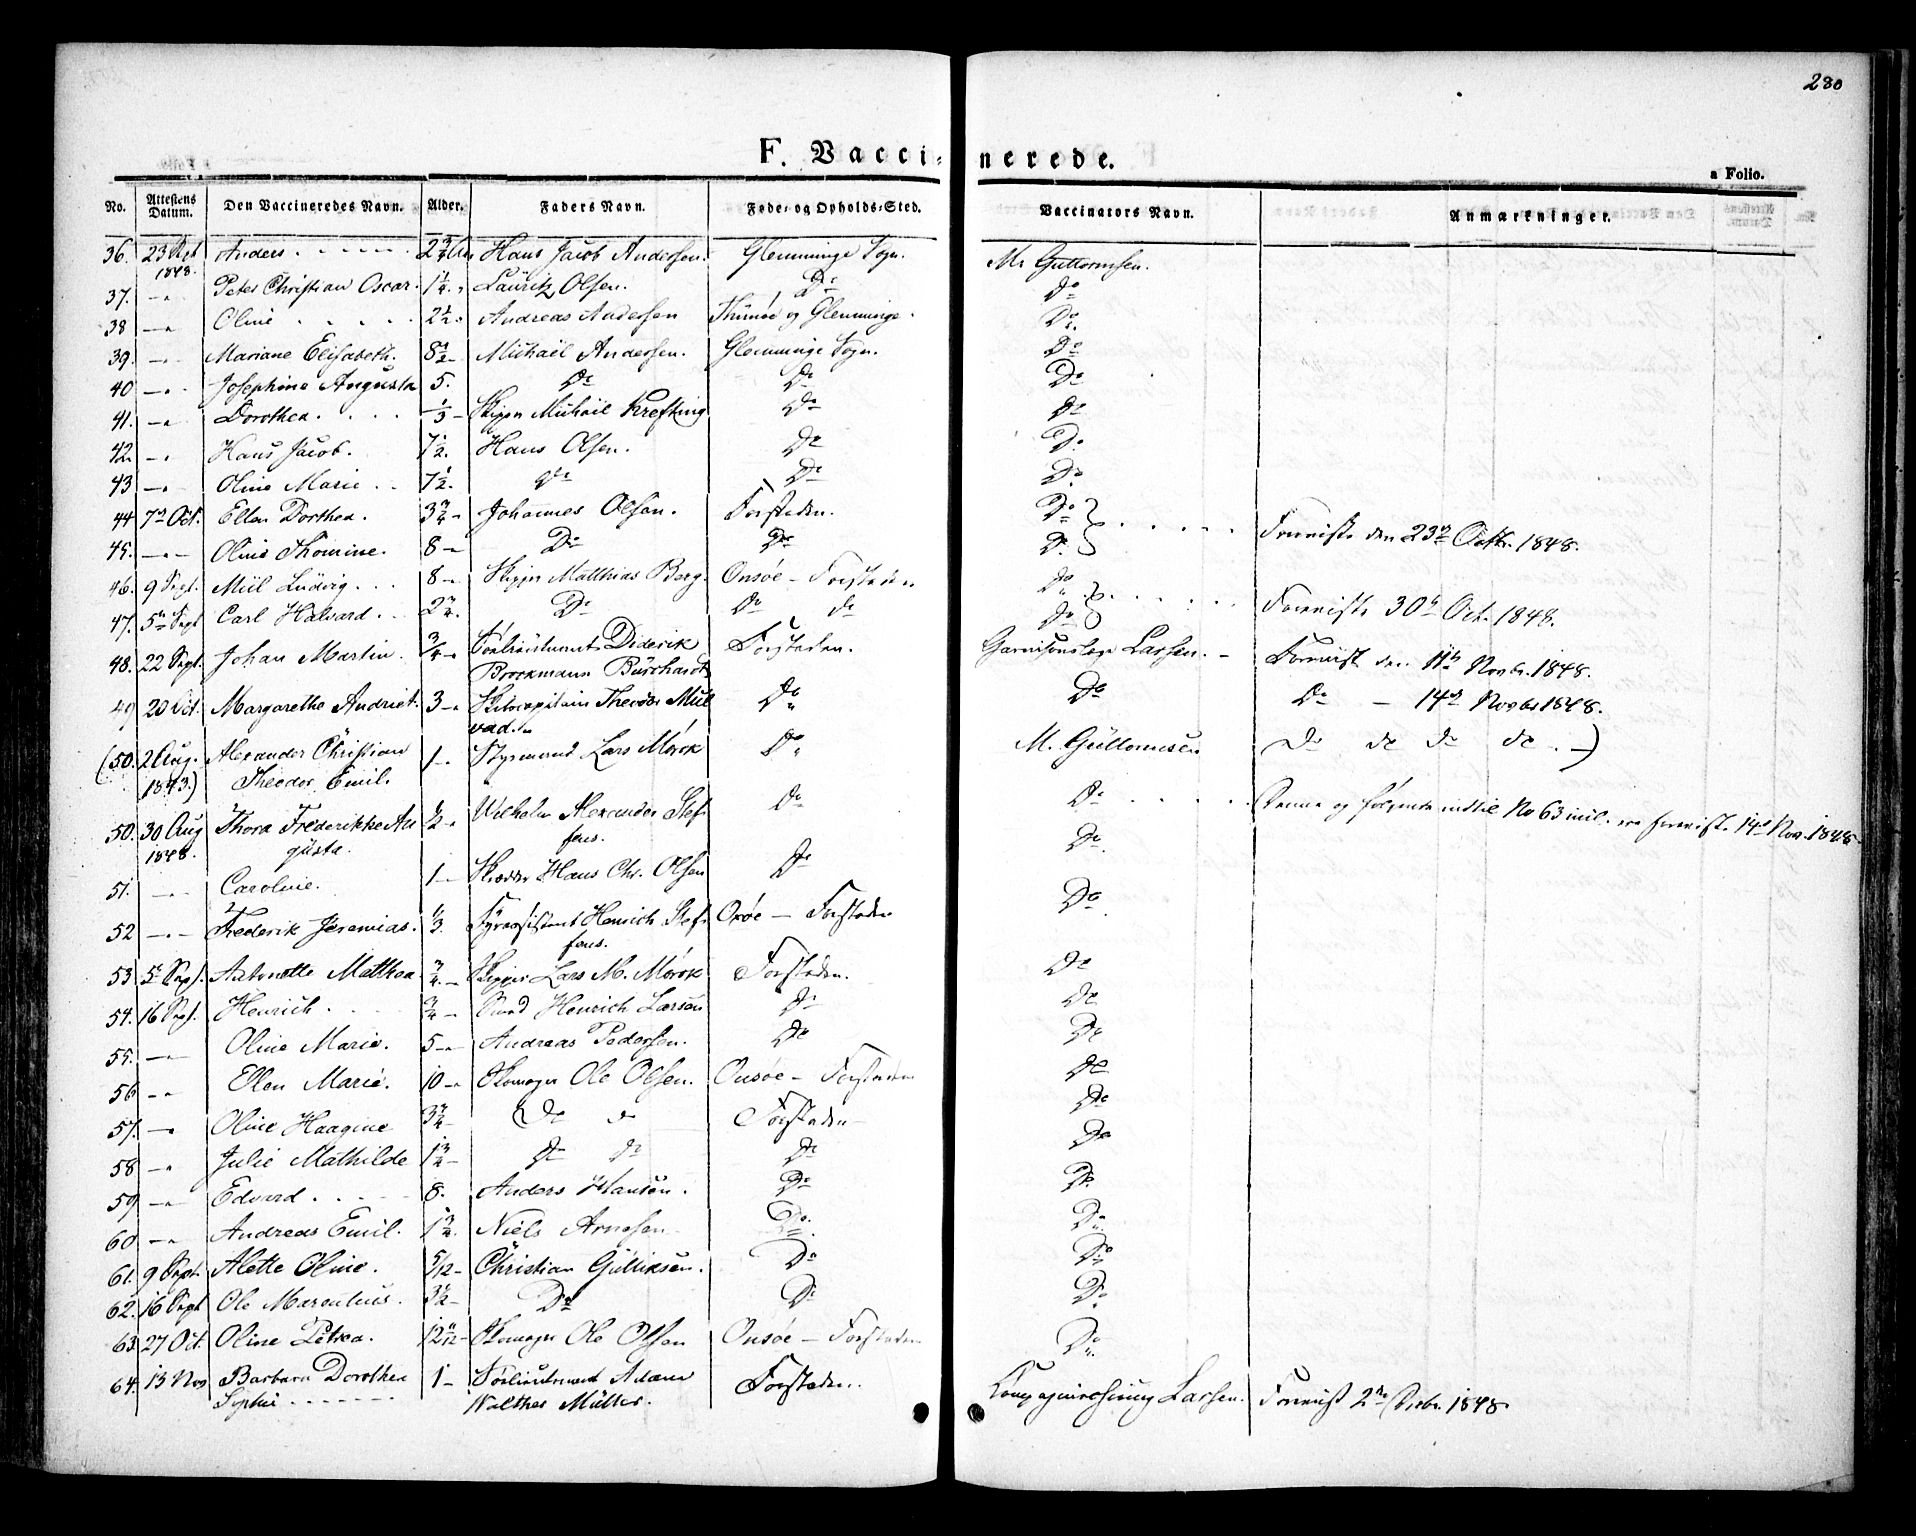 280
F. Vaccinerede.
a Folio.
No. Attestens Datum. Den Vaccineredes Navn. Alder. Faders Navn. Føde- og Opholds-Sted. Vaccinators Navn. Anmærkninger.
36. 23 Sept 1848. Anders Hans Jacob Andersen. Glemminge Sogn. M. Guttormsen.
37. -"- Peter Christian Oscar. 1¼ Lauritz Olsen. Do Do
38 -"- Oline 2½ Andreas Andersen Thunøe og Glemminge. Do
39. -"- Mariane Elisabeth. Michael Andersen. Glemminge Sogn. Do
40 -"- Josephine Augusta 5. Do Do Do
41. -"- Dorothea. Skipper Michael Krefting Do Do
42. -"- Hans Jacob. 7½ Hans Olsen. Do Do
43 -"- Oline Marie 7½ Do Do Do
44 7de Oct. Ellen Dorthea. 3¾ Johannes Olsen. Forstaden. Do
45. -"- Oline Thomine. 8 Do Do Do Foreviist den 23de Octbr. 1848.
46. 9 Sept. Emil Ludvig 8 Skipper Matthias Berg. Onsøe - Forstaden Do
47. 5te Sept Carl Halvard 2¾ Do Do do Do Foreviist 30te Oct. 1848.
48. 22 Sept. Johan Martin ¾ Diderik Forstaden. Larsen. Foreviist den 11te Novbr. 1848.
Brockmann Burchardt
49 20 Oct. Margarethe Andriet. 3 Theodor Mül Do Do Do - 14de Novbr 1848.
vad.
(50. 2 Aug. Alexander Christian 1 Styrmand Lars Mörk Do M. Guttormsen Do do do do
1843.) Theodor Emil.
50. 30 Aug Thora Frederikke Au ½ Wilhelm Alexander Stef Do Do Denne og følgende indtil No 63 incl. ere foreviist 14de Nov. 1848.
1848. gusta. fens. Do
51. -"- Caroline. 1 Skrædder Hans Chr. Olsen Do
52 -"- Frederik Jeremias. ⅓ Henrich Stef Onsøe - Forstaden Do
fens.
53. 5te Sept. Antonette Mathea ¾ Skipper Lars M. Mörk Forstaden. Do
54. 16 Sept. Henrich ¾ Henrich Larsen Do Do
55. -"- Oline Marie. 5 Andreas Pedersen. Do Do
56 -"- Ellen Marie. 10 Skomager Ole Olsen. Onsøe - Forstaden Do
57. -"- Oline Haagine 3¾ Do do Forstaden Do
58 -"- Julie Mathilde Do do Do Do
59 -"- Edvard 8. Anders Hansen. Do Do
60 -"- Andreas Emil. Niels Arnesen Do Do
61. 9 Sept. Alette Oline. 5/12 Christian Gulliksen. Do Do
62. 16 Sept Ole Marenius. 3½ Do Do Do
63. 27 Oct. Oline Petrea. Skomager Ole Olsen Onsøe - Forstaden Do
64. 13 Nov Barbara Dorothea 1 Adam Forstaden. Larsen. Foreviist 2den Decbr. 1848.
Sophie Walther Müller.